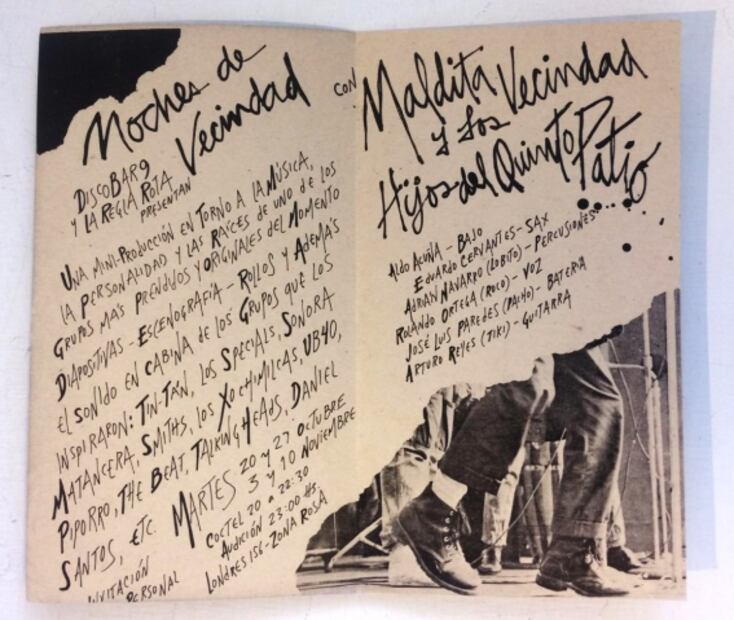 Noches de
Vecindad
DiscoBar 9
y La Regla Rota
presentan
Una mini-producción en torno a la música,
la personalidad y las raíces de uno de los
grupos mas prendidos y originales del momento
Diapositivas - Escenografía - Rollos y además
el sonido en cabina de los grupos que los
inspiraron: Tin-Tán, Los Specials, Sonora
Matancera, Smiths, Los Xochimilcas, UB40,
Piporro, The Beat, Talking Heads, Daniel
Santos, etc.
Martes 20 y 27 octubre
3 y 10 noviembre
Coctel 20 a 22:30
Audición 23:00 Hs.
Londres 156-Zona Rosa
Invitación
Personal
con
Maldita Vecindad
y los
Hijos del Quinto Patio
Aldo Acuña - Bajo
Eduardo Cervantes - Sax
Adrian Navarro (Lobito) - Percusiones
Rolando Ortega (Roco) - Voz
José Luis Paredes (Pacho) - Batería
Arturo Reyes (Tiki) - Guitarra